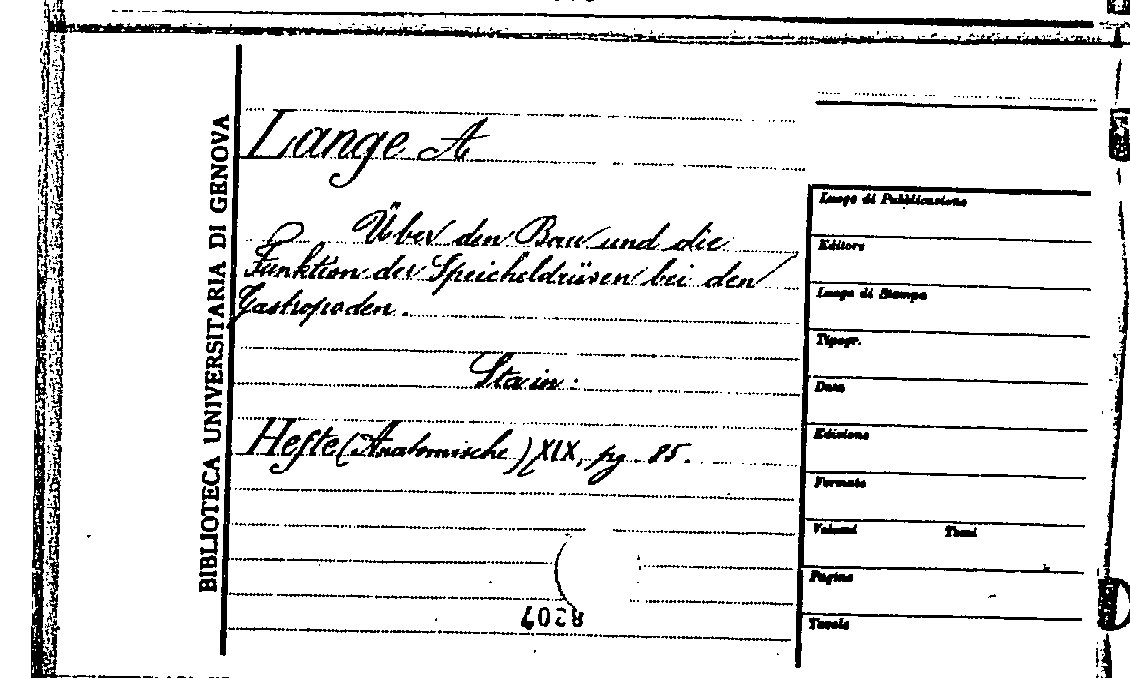 BIBLIOTECA UNIVERSITARIA DI GENOVA
Lange A
Über den Bau und die
Funktion der Speicheldrüsen bei den
Gastropoden.
Sta in:
Hefte (Anatomische) XIX, pg. 85.
8207
Luogo di Pubblicazione
Editore
Luogo di Stampa
Tipogr.
Data
Edizione
Formato
Volumi Tomi
Pagine
Tavole